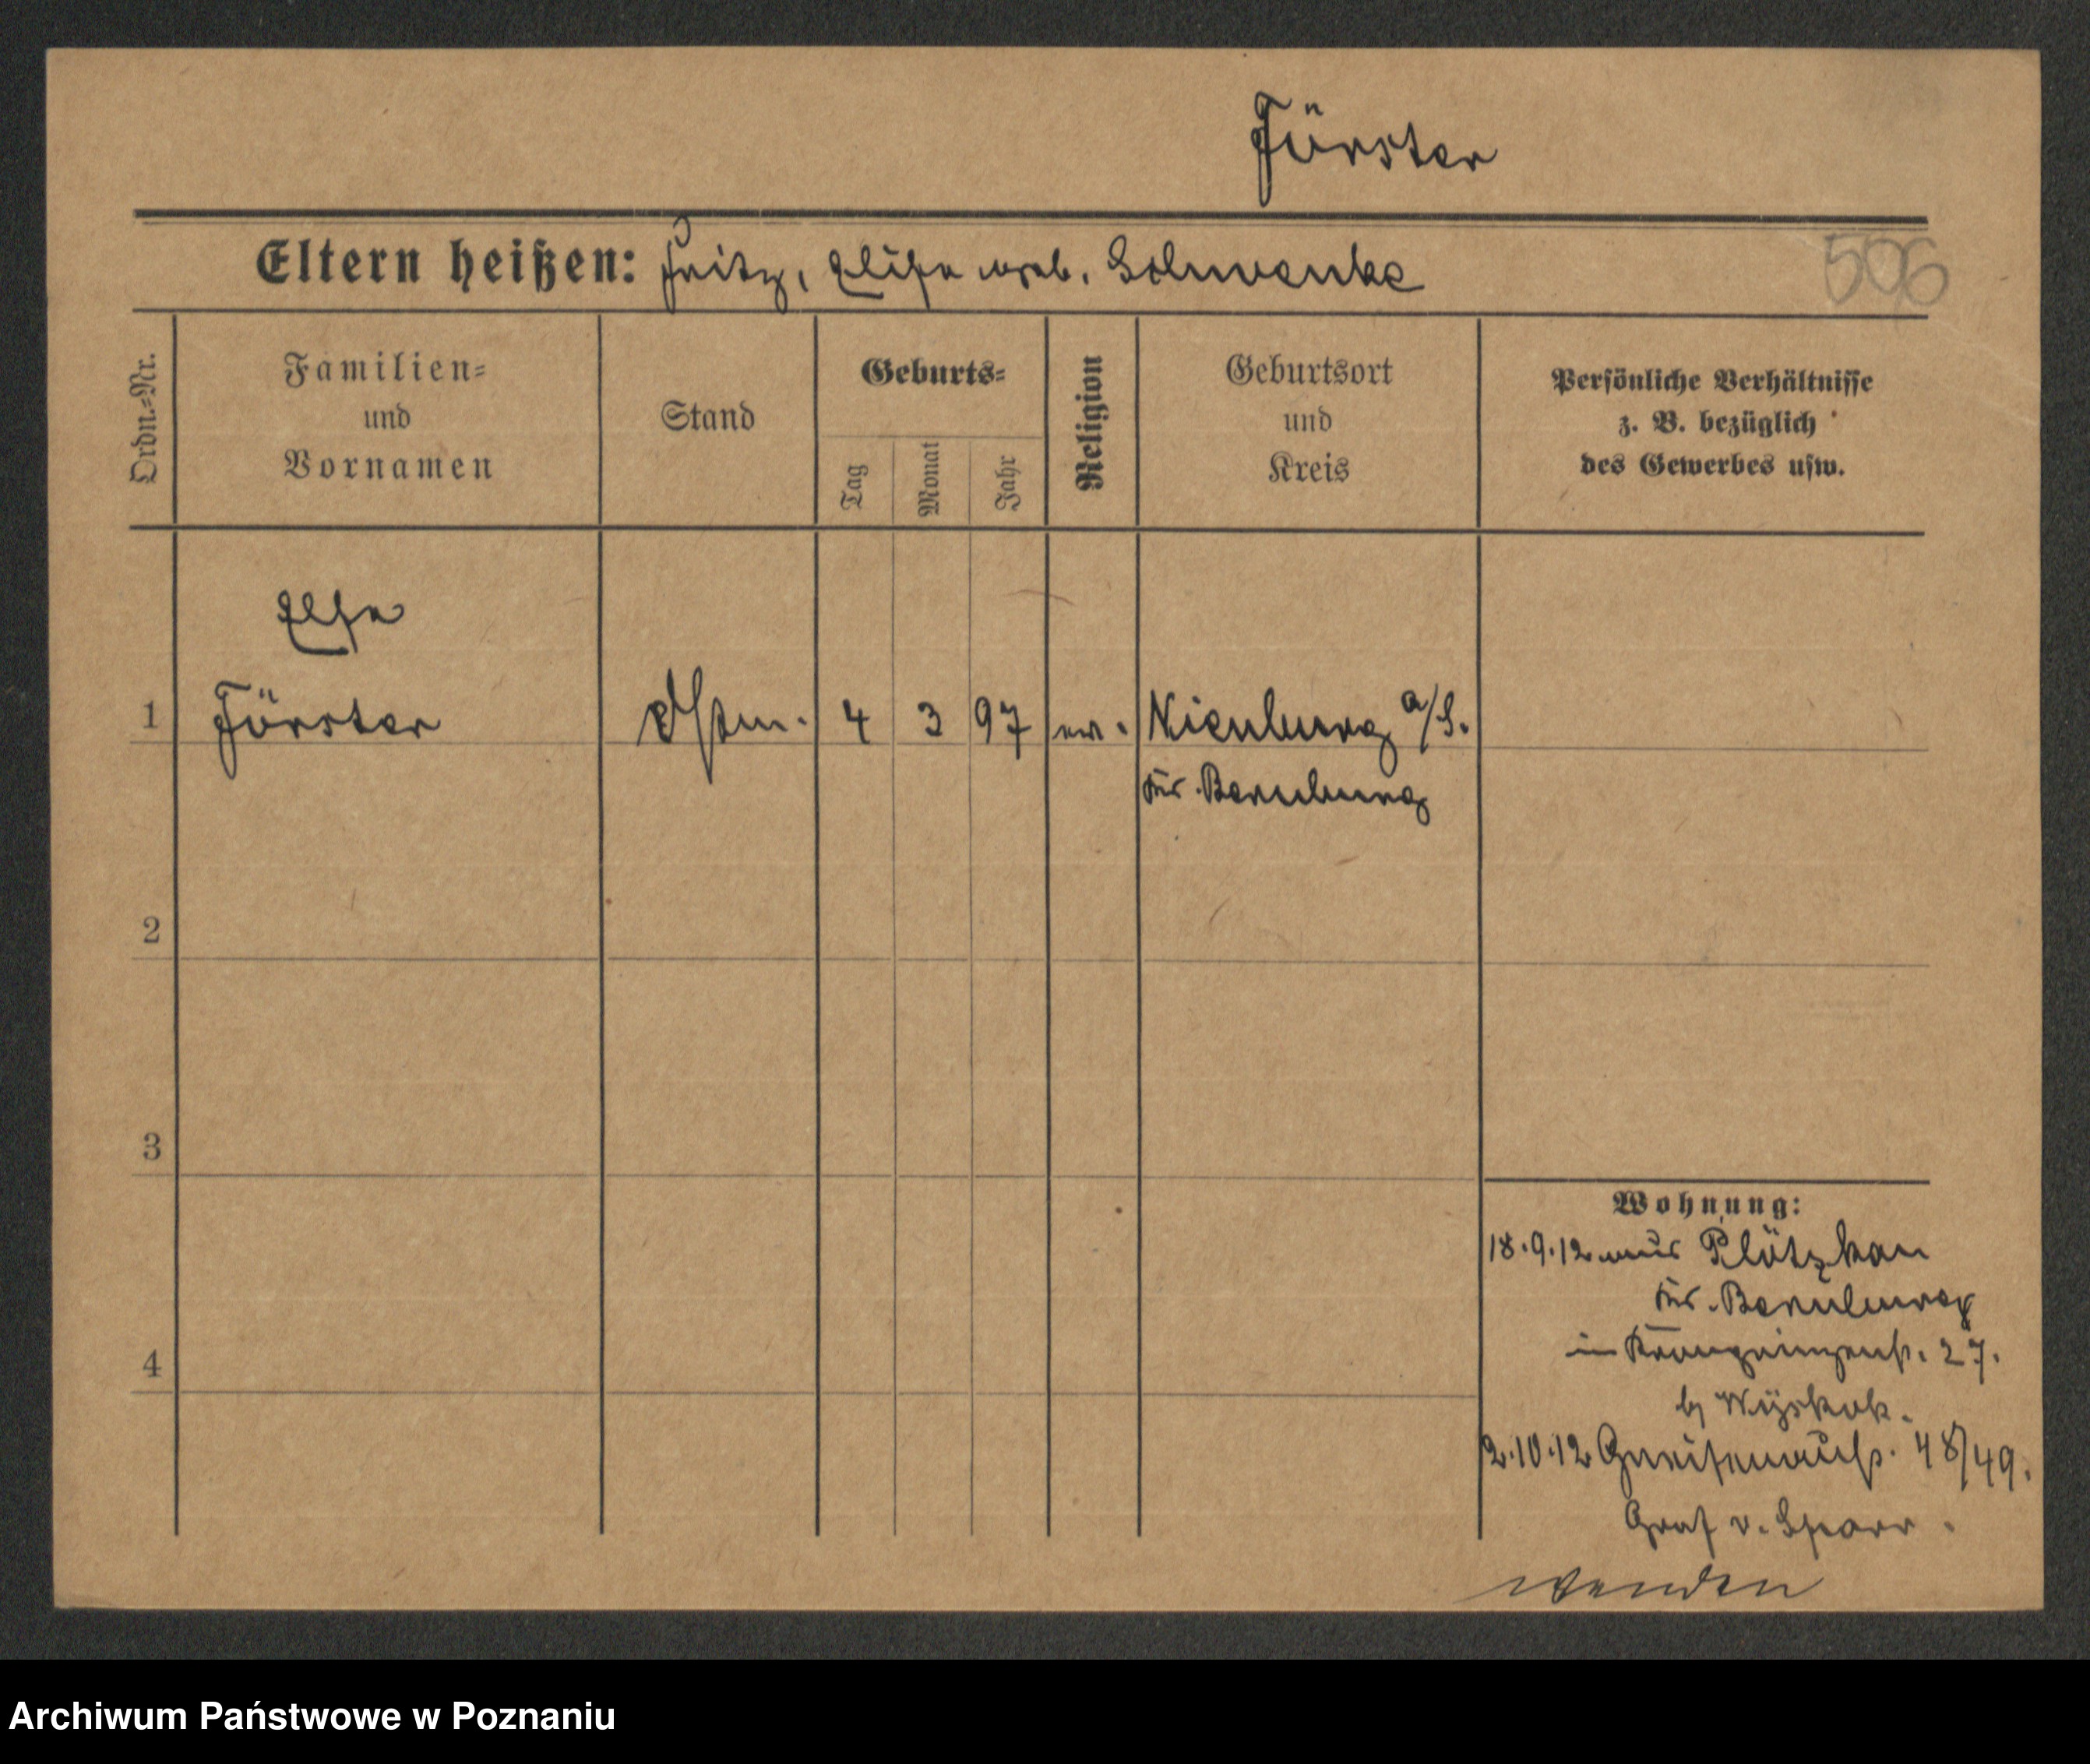 Förster
Eltern heißen: Fritz, Elise geb. Schwenke
506
Ordn.=Nr.
Familien=
und
Vornamen
Stand
Geburts=
Tag
Monat
Jahr
Religion
Geburtsort
und
Kreis
Persönliche Verhältnisse
z. B. bezüglich
des Gewerbes usw.
Else
1 Förster 4 3 97 ev. Nienburg a/S.
Kr. Bernburg
2
3
4
Wohnung:
18.9.12 aus Plötzkau
Kr. Bernburg
in Kronprinzenstr. 27.
b/
2.10.12 Gneisenaustr. 48/49.
Graf v. Sparr.
wenden
Archiwum Państwowe w Poznaniu